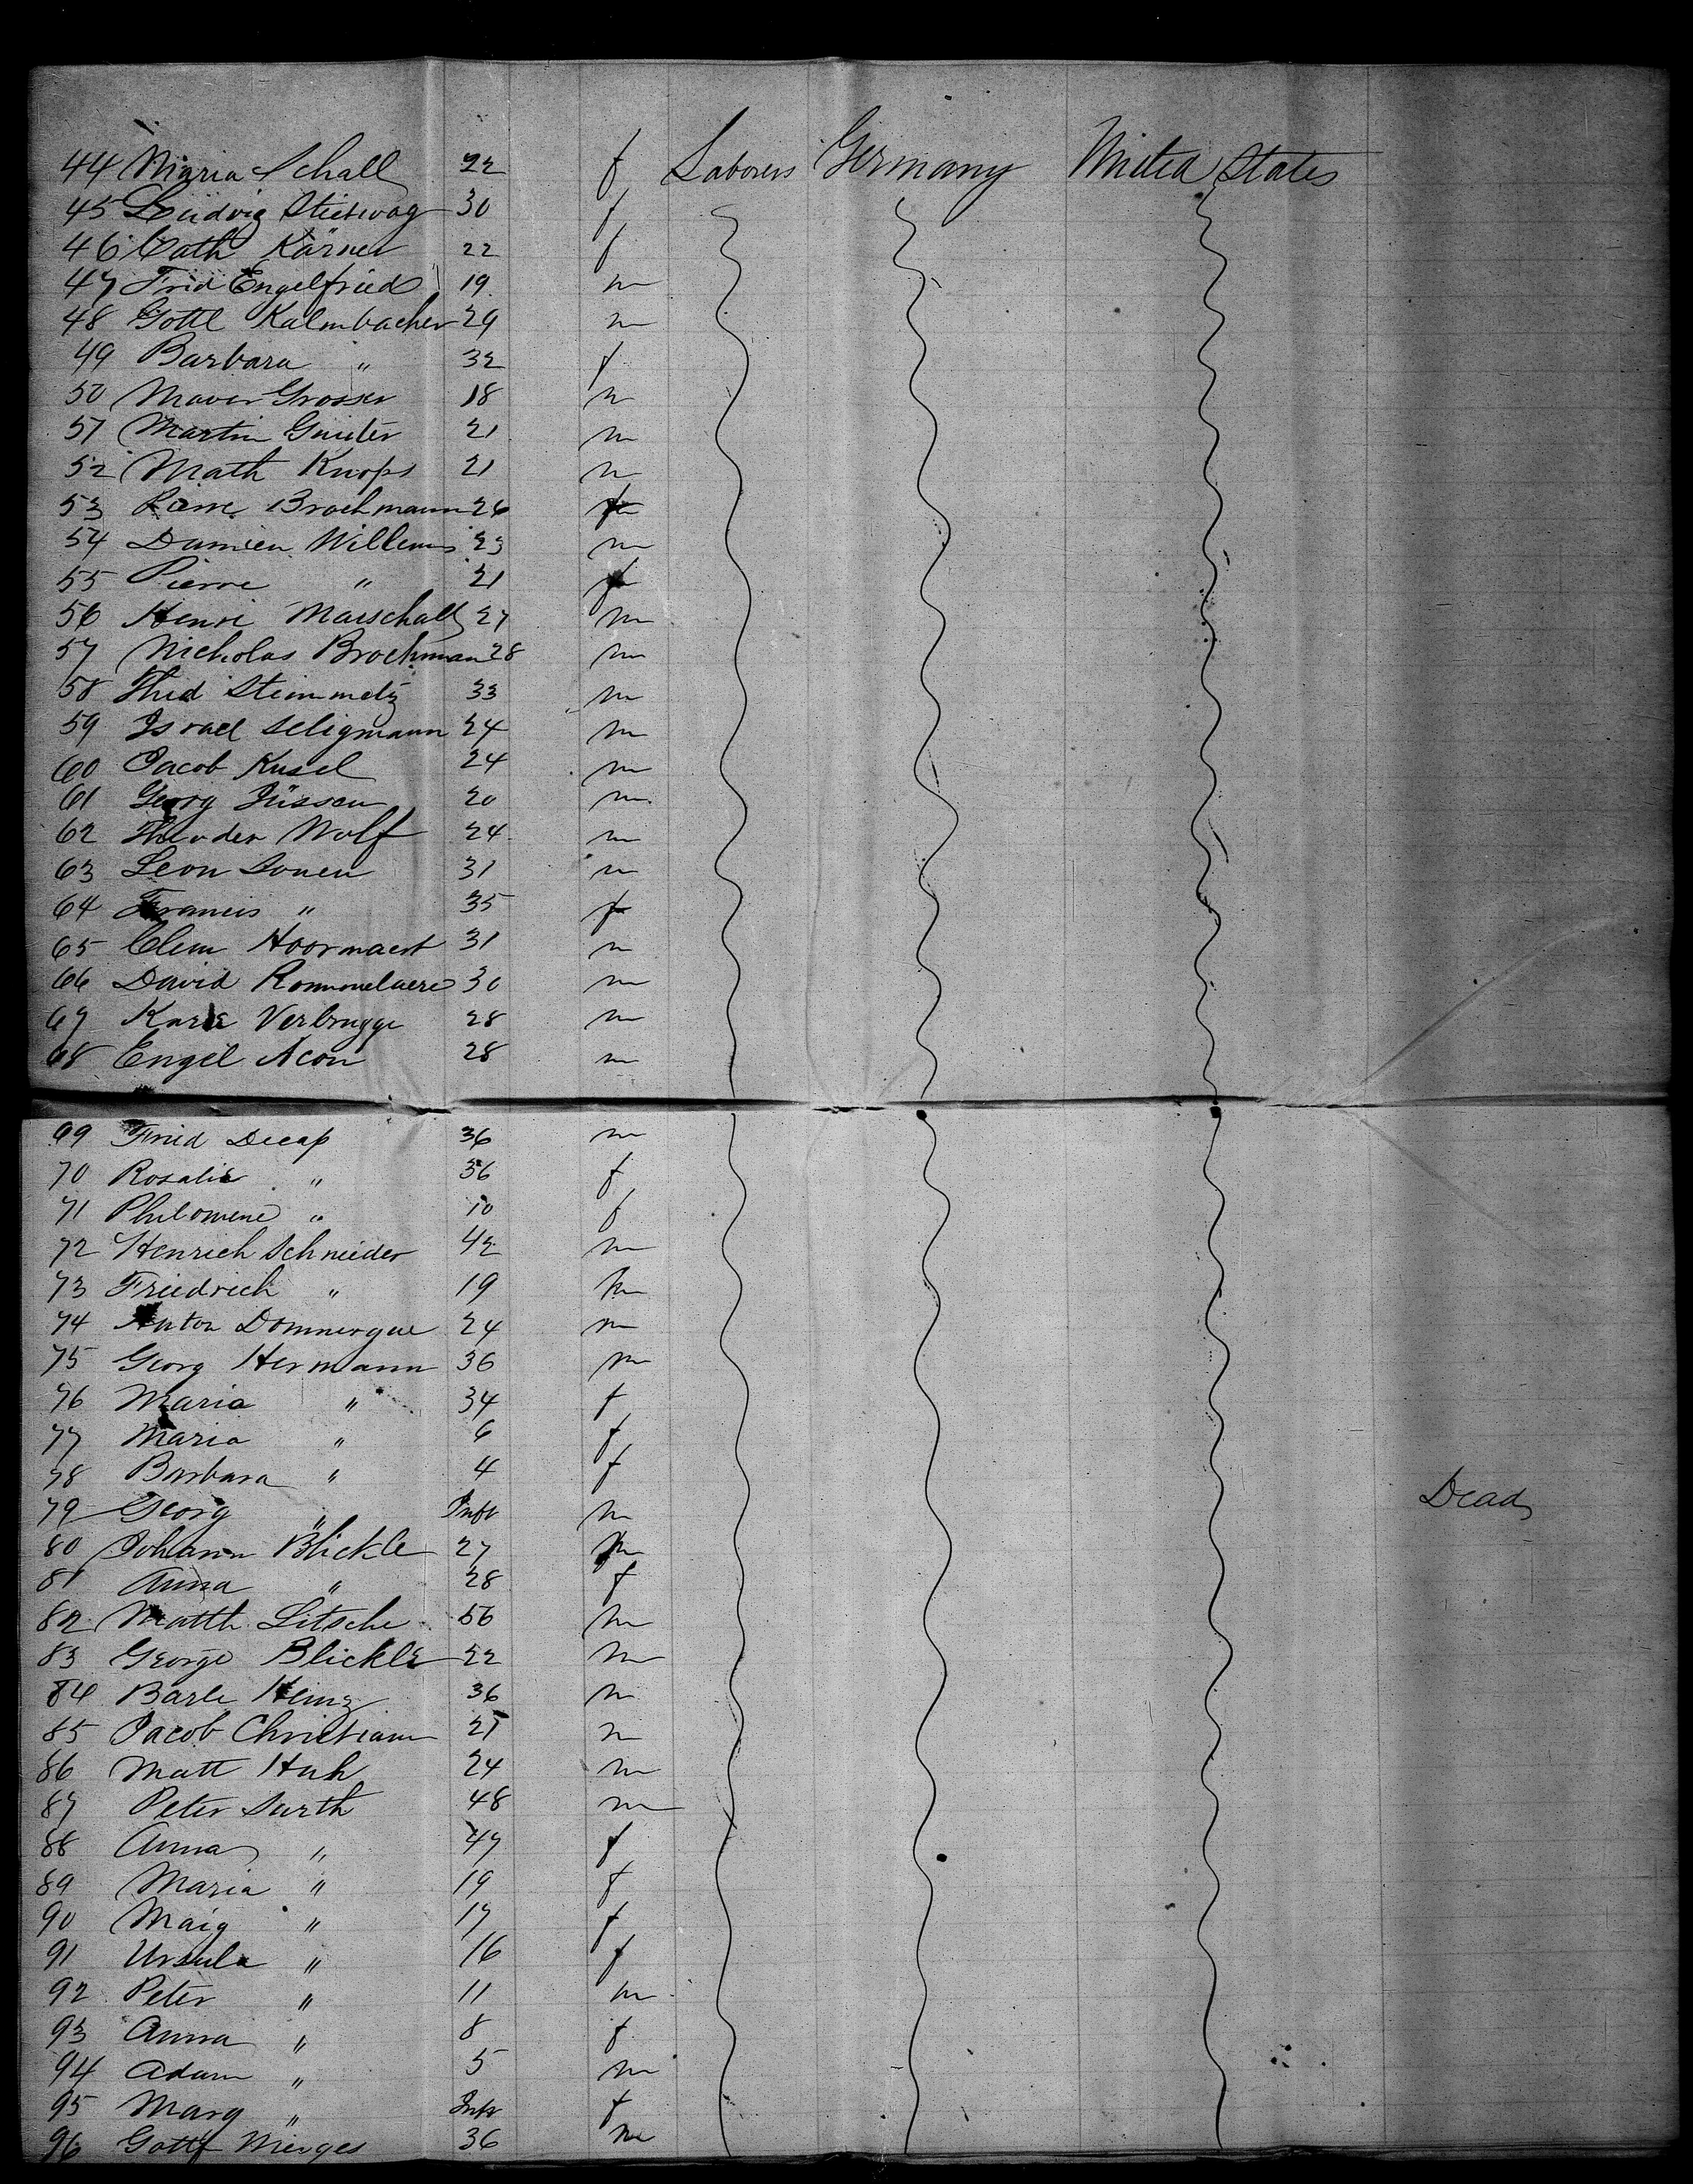 44 Maria Schall 22 f Laborers Germany United States
45 Ludwig Stietwag 30 f
46 Cath Kärner 22 f
47 Frid Engelfried 19 m
48 Gottl Kalmbacher 29 m
49 Barbara " 32 f
50 Maver Grosser 18 m
51 Martin 21 m
52 Math Knops 21 m
53 Brochmann 26
54 Damien Willems 23 m
55 Pierre " 21
56 Henri Marschall 27 m
57 Nicholas Brochman 28 m
58 Steinmetz 33 m
59 Israel Seligmann 24 m
60 Jacob Kusel 24 m
61 Georg Jüssen 20 m
62 Theoder Wolf 24 m
63 Leon Sonen 31 m
64 Francis " 35 f
65 Clem Hoormaert 31 m
66 David Rommelaere 30 m
67 Verbrugge 28 m
68 Engel Acou 28 m
69 Frid Decap 36 m
70 Rosalie " 36 f
71 Philomene " 10 f
72 Henrich Schneider 42 m
73 Friedrich " 19 m
74 Anton Domnergue 24 m
75 Georg Hermann 36 m
76 Maria " 34 f
77 Maria " 6 f
78 Barbara " 4 f
79 Georg " Inft m Dead
80 Johann Blickle 27 m
81 Anna " 28 f
82 Matth Litsche 56 m
83 George Blickle 22 m
84 Barle Heinz 36 m
85 Jacob Christian 21 m
86 Matt Huh 24 m
87 Peter Surth 48 m
88 Anna " 47 f
89 Maria " 19 f
90 Marg " 17 f
91 Ursula " 16 f
92 Peter " 11 m
93 Anna " 8 f
94 Adam " 5 m
95 Marg " Inft f
96 Gottf Merges 36 m